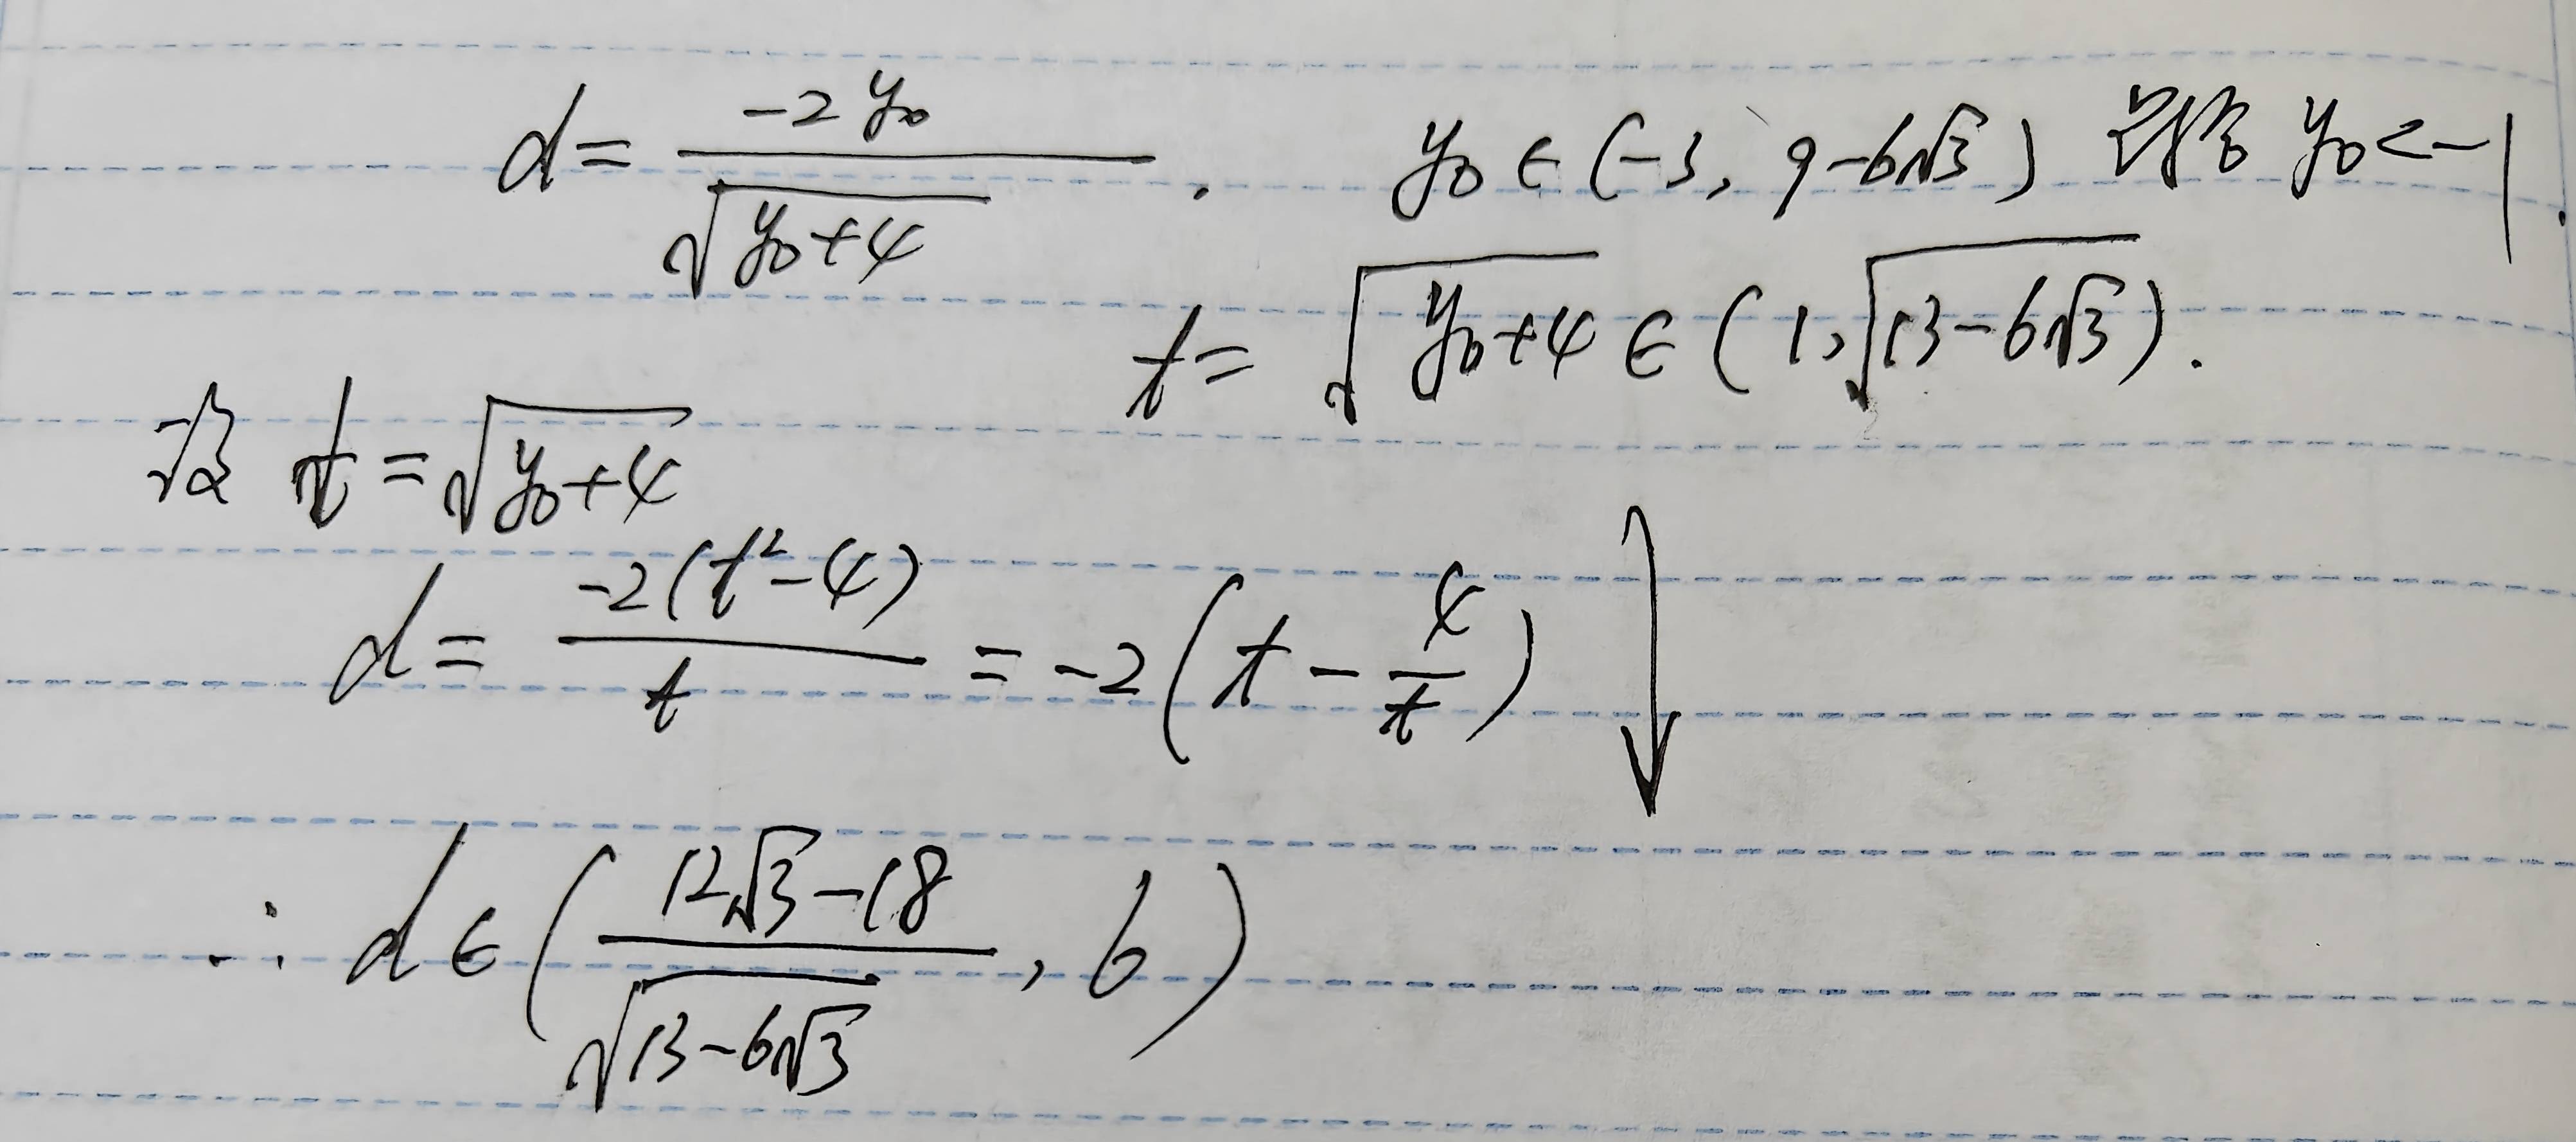 d = \frac{-2y_0}{\sqrt{y_0+4}}. y_0 ∈ (-3, 9-6√3) y_0 < -1.
t = \sqrt{y_0+4} ∈ (1, \sqrt{13-6√3}).
设 t = \sqrt{y_0+4}
d = \frac{-2(t^2-4)}{t} = -2(t - \frac{4}{t}) ↓
∴ d ∈ (\frac{12√3-18}{\sqrt{13-6√3}}, 6)